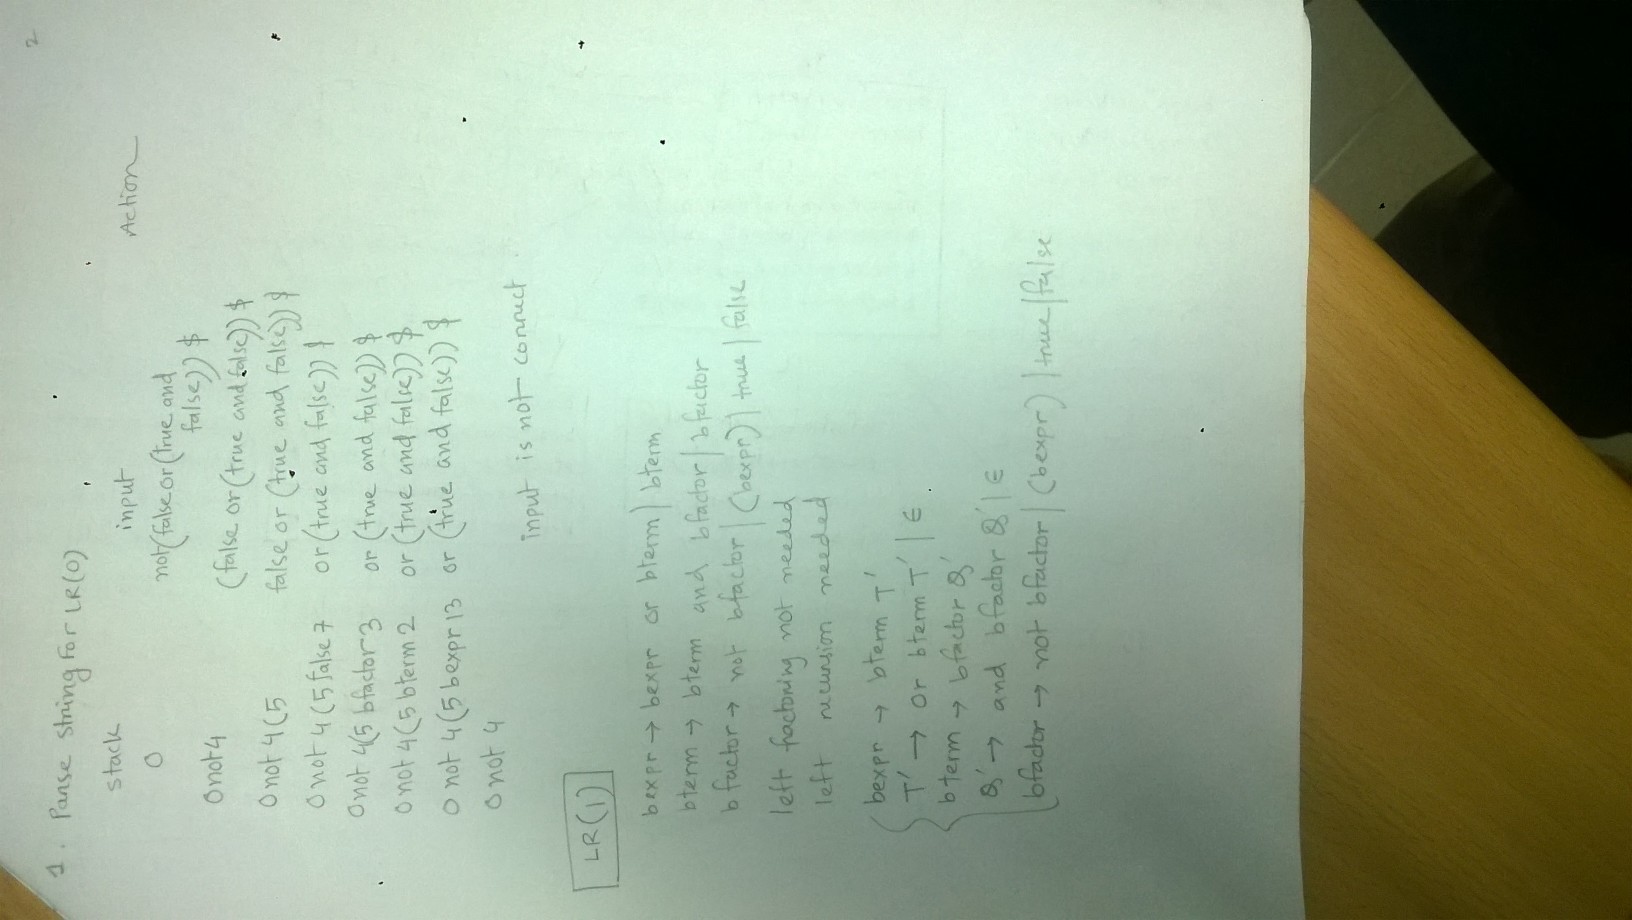 2
1. Parse string For LR(0)
stack input Action
0 not(false or(true and
false)) $
0 not4 (false or(true and false)) $
0 not 4(5 false or (true and false)) $
0 not 4(5 false 7 or (true and false)) $
0 not 4(5 bfactor 3 or (true and false)) $
0 not 4(5 bterm 2 or (true and false)) $
0 not 4(5 bexpr 13 or (true and false)) $
0 not 4 input is not correct
LR(1)
bexpr → bexpr or bterm | bterm
bterm → bterm and bfactor | bfactor
bfactor → not bfactor | (bexpr) | true | false
left factoring not needed
left recursion needed
bexpr → bterm T'
T' → or bterm T' | ε
bterm → bfactor Q'
Q' → and bfactor Q' | ε
bfactor → not bfactor | (bexpr) | true | false